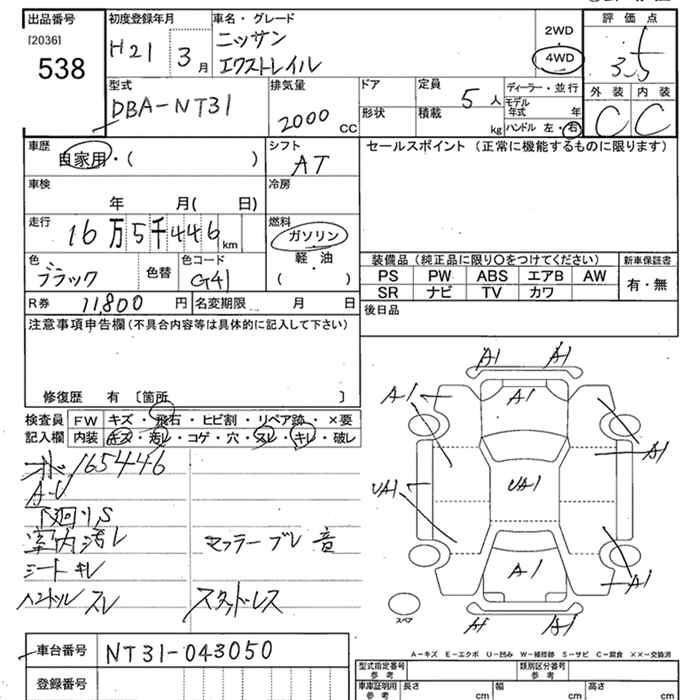 出品番号 初度登録年月 車名・グレード 評価点
[2036] H21 3月 ニッサン 2WD 3.5
538 エクストレイル 4WD
型式 排気量 ドア 定員 5人 ディーラー・並行 外装 内装
DBA-NT31 2000cc 形状 積載 kg モデル年式 年 C C
ハンドル 左・右
車歴 シフト セールスポイント (正常に機能するものに限ります)
自家用・( ) AT
車検 冷房
年 月( 日)
走行 燃料
16万5千446km ガソリン
軽・油
( )
色 色替 色コード 装備品 (純正品に限り○をつけてください) 新車保証書
ブラック G41 PS PW ABS エアB AW 有・無
SR ナビ TV カワ
R券 11,800円 名変期限 月 日 後日品
注意事項申告欄(不具合内容等は具体的に記入して下さい)
修復歴 有 〔箇所 〕
検査員 FW キズ・飛石・ヒビ割・リペア跡・×要
記入欄 内装 キズ・汚レ・コゲ・穴・スレ・キレ・破レ
165446
A-U
下廻りS
室内汚レ マフラーブレ音
シートキレ
ハンドルスレ スタッドレス
A1 A1
A-1 A1
A1
UA1 UA1
A1 A1
A1
スペア
A-キズ E-エクボ U-凹み W-補修跡 S-サビ C-腐食 ××-交換済
車台番号 NT31-043050
登録番号
型式指定番号 参考 類別区分番号 参考
車庫証明用 参考 長さ cm 幅 cm 高さ cm